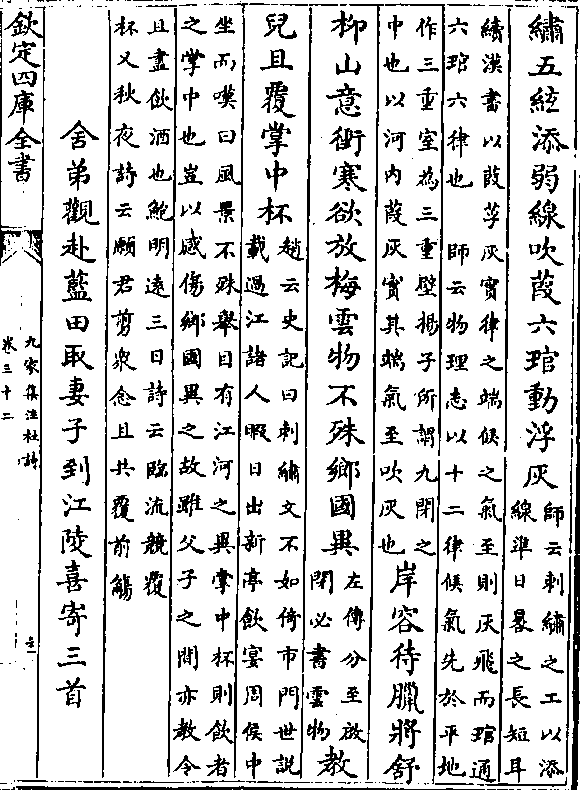 繡五紋添弱線吹葭六琯動浮灰師云刺繡之工以添
線準日晷之長短耳
續漢書以葭莩灰實律之端候之氣至則灰飛而琯通
六琯六律也　師云物理志以十二律候氣先於平地
作三重室為三重壁揚子所謂九閉之
中也以河内葭灰實其端氣至吹灰也岸容待臘將舒
柳山意衝寒欲放梅雲物不殊鄉國異左傳分至啟
閉必書雲物教
兒且覆掌中杯趙云史記曰刺繡文不如倚市門世説
載過江諸人暇日出新亭飲宴周侯中
坐而嘆曰風景不殊舉目有江河之異掌中杯則飲者
之掌中也豈以感傷鄉國異之故雖父子之間亦教令
且盡飲酒也鮑明遠三日詩云臨流競覆
杯又秋夜詩云願君剪衆念且共覆前觴
舍弟觀赴藍田取妻子到江陵喜寄三首
欽定四庫全書
九家集注杜詩
卷三十二